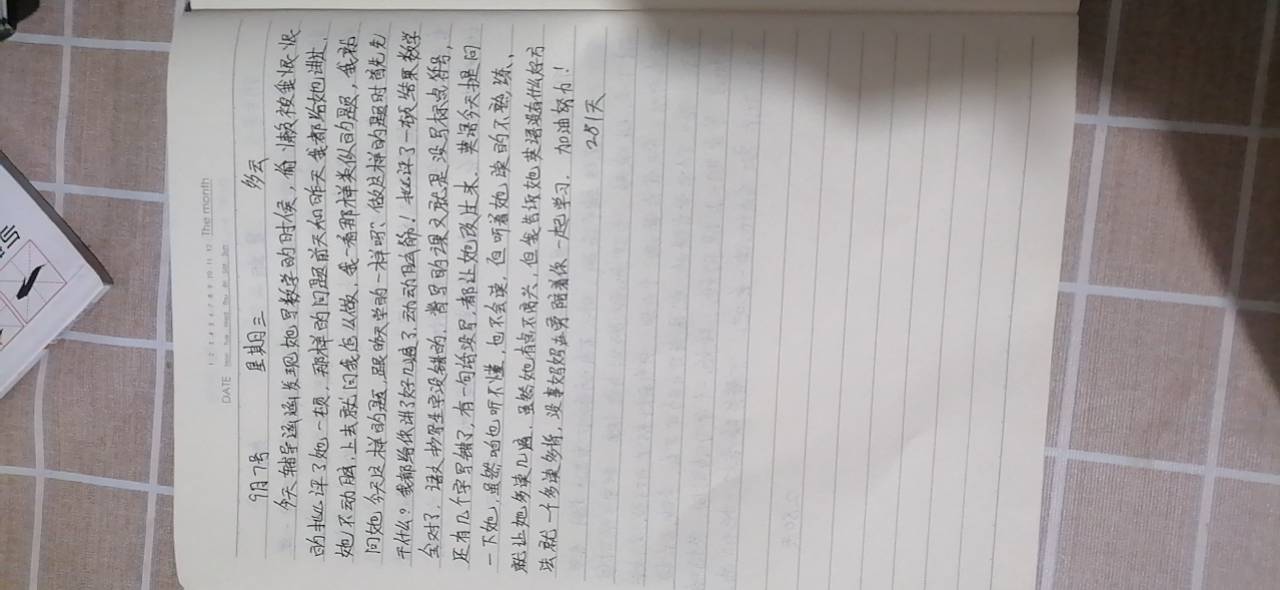 The month
DATE
9月7号 星期三 多云
今天辅导涵涵发现她写数学的时候，偷懒被我狠狠
的批评了她一顿，那样的问题前天和昨天我都给她讲过，
她不动脑，上去就问我怎么做，我一看那样类似的题，我就
问她今天这样的题，跟昨天学的一样吗，做这样的题时首先先
干什么？我都给你讲了好几遍了，动动脑筋！批评了一顿结果数学
全对了，语文抄写生字没错的，背写的课文就是没写标点符号，
还有几个字写错了，有一句话没写，都让她改过来、英语今天提问
一下她，虽然咱也听不懂，也不会读，但听着她读的不熟练，
就让她多读几遍，虽然她有点不高兴，但我告诉她英语没有什么好方
法就一个多读多背，没事妈妈也要陪着你一起学习，加油努力！
251天